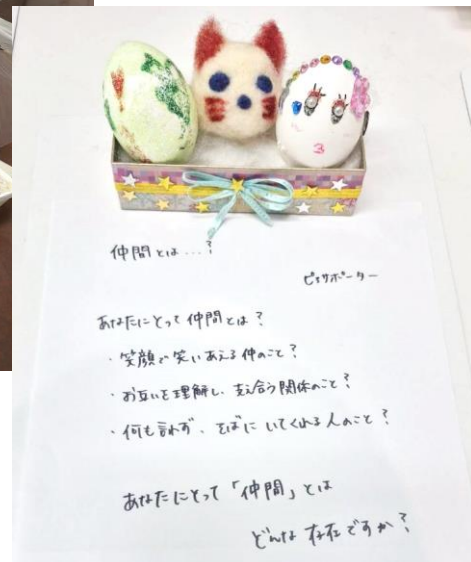 仲間とは…?
ピアサポーター
あなたにとって仲間とは?
・笑顔で笑いあえる仲のこと?
・お互いを理解し、支え合う関係のこと?
・何も言わず、そばにいてくれる人のこと?
あなたにとって「仲間」とは
どんな存在ですか?